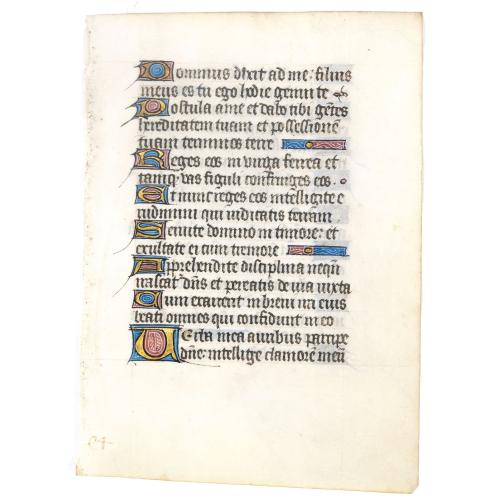 Dominus dixit ad me: filius
meus es tu ego hodie genui te
Postula a me et dabo tibi gētes
hereditatem tuam et possessionē
tuam terminos terre
Reges eos in virga ferrea et
tamq̄ vas figuli confringes eos.
Et nunc reges eos intelligite e
rudimini qui iudicatis terram
Servite domino in timore: et
exultate ei cum tremore
Apprehendite disciplinā nequā
irascat dñs et pereatis de via iusta
Cum exarserit in brevi ira eius
beati omnes qui confidunt in eo
Verba mea auribus percipe
dñe: intellige clamorē meū